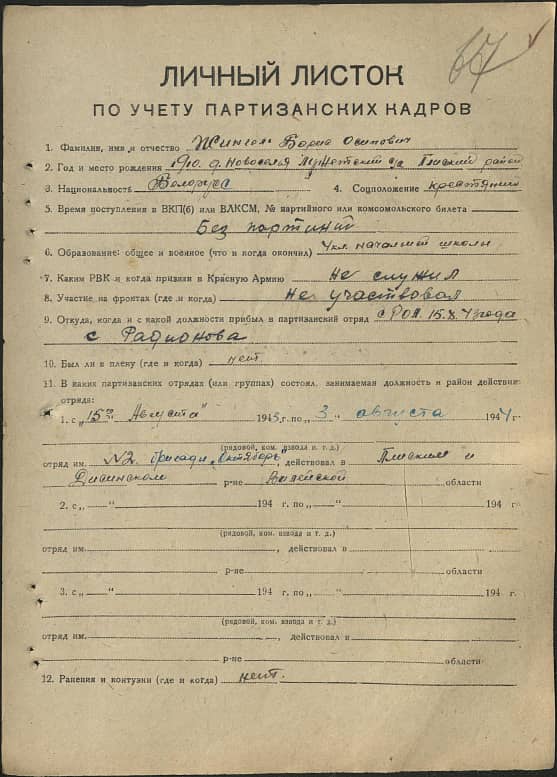 67
ЛИЧНЫЙ ЛИСТОК
ПО УЧЕТУ ПАРТИЗАНСКИХ КАДРОВ
1. Фамилия, имя и отчество Борис Осипович
2. Год и место рождения 1910. д. Новоселья с/с Плиский район
3. Национальность Белорус 4. Соцположение крестянин
5. Время поступления в ВКП(б) или ВЛКСМ, № партийного или комсомольского билета
Без партиний
6. Образование: общее и военное (что и когда окончил) 4 кл. началной школи
7. Каким РВК и когда призван в Красную Армию не служил
8. Участие на фронтах (где и когда) не участвовал
9. Откуда, когда и с какой должности прибыл в партизанский отряд с РОА. 15.8.43 года
с Радионова
10. Был ли в плену (где и когда) нет.
11. В каких партизанских отрядах (или группах) состоял, занимаемая должность и район действия
отряда:
1. с „15го Августа" 1943 г. по „3" августа 1944 г.
(рядовой, ком. взвода и т. д.)
отряд им. №2. бригади „Октябрь", действовал в Плиском и
Дисенском р-не Вилейской области
2. с „ " 194 г. по „ " 194 г.
(рядовой, ком. взвода и т. д.)
отряд им. , действовал в
р-не области
3. с „ " 194 г. по „ " 194 г.
(рядовой, ком. взвода и т. д.)
отряд им. , действовал в
р-не области
12. Ранения и контузии (где и когда) нет.